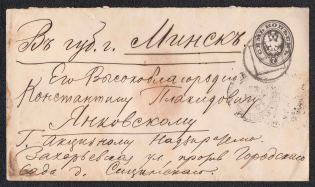 Въ губ. г. Минскъ
Его Высокоблагородію
Константину Плакидовичу
Янковскому
Г. Акцизному Надзирателю.
Захарьевская ул., противъ Городского
сада д.